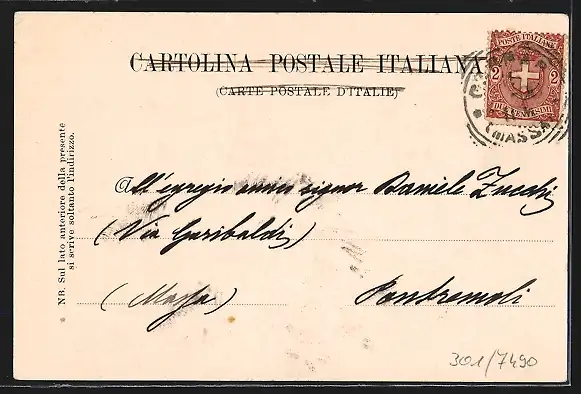 CARTOLINA POSTALE ITALIANA
(CARTE POSTALE D'ITALIE)
POSTE ITALIANE
2 2
DUE CENTESIMI
(MASSA
NB. Sul lato anteriore della presente
si scrive soltanto l'indirizzo.
All'egregio amico signor Daniele Zucchi
(Via Garibaldi)
(Massa) Pontremoli
301/7490